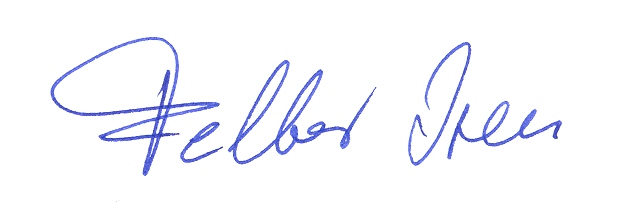 Felber Irén